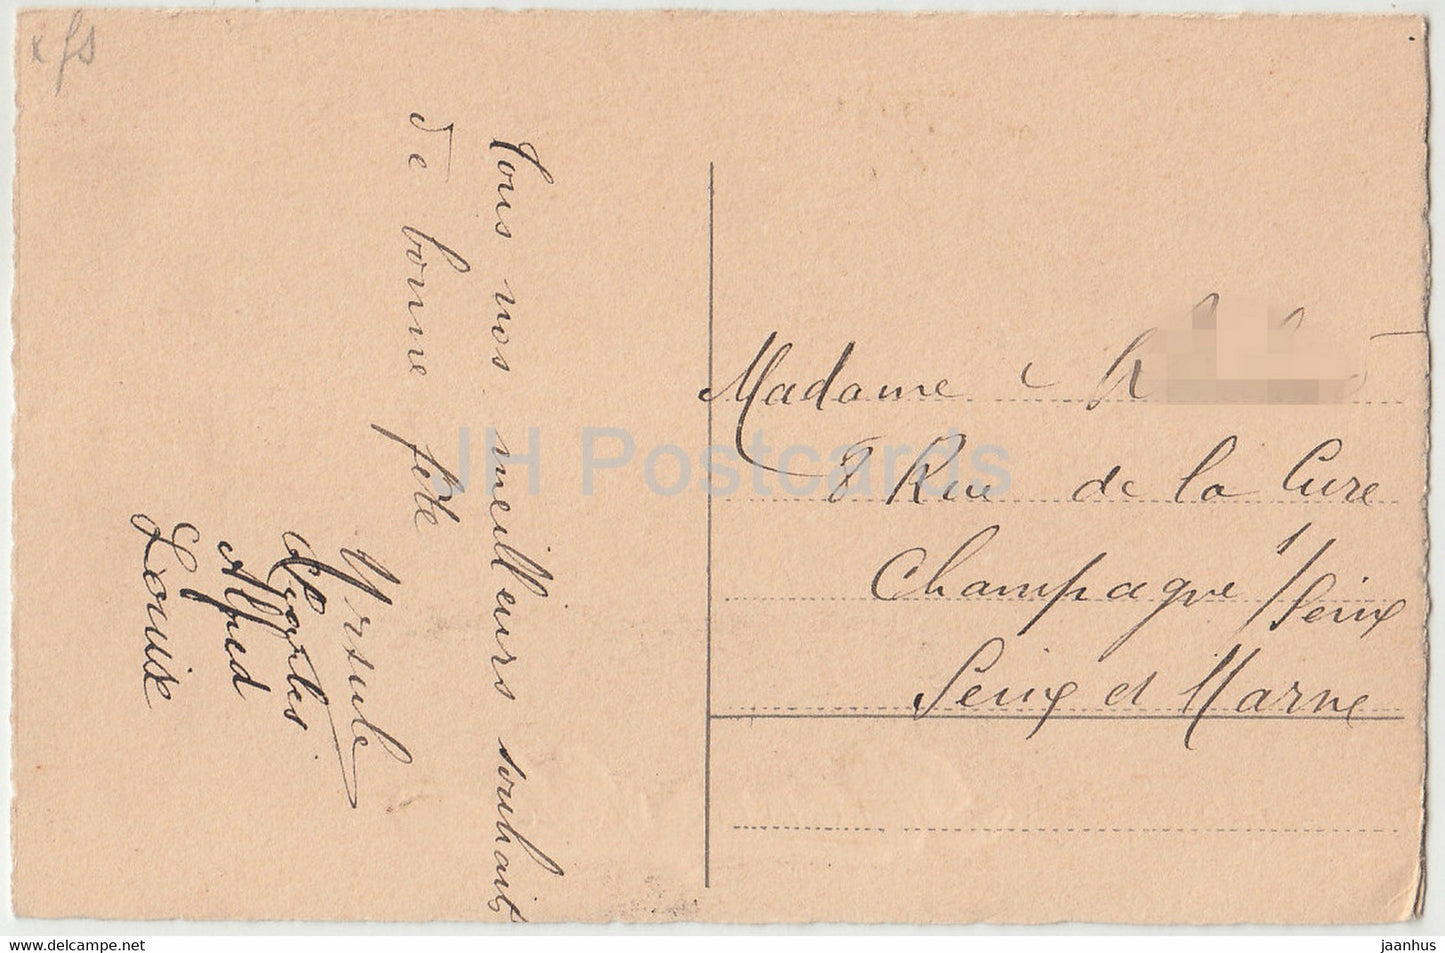 Tous nos meilleurs souhaits
de bonne fête
Ursule
Charles
Alfred
Louise
Madame
8 Rue de la Cure
Champagne s/Seine
Seine et Marne
JH Postcards
delcampe.net
jaanhus